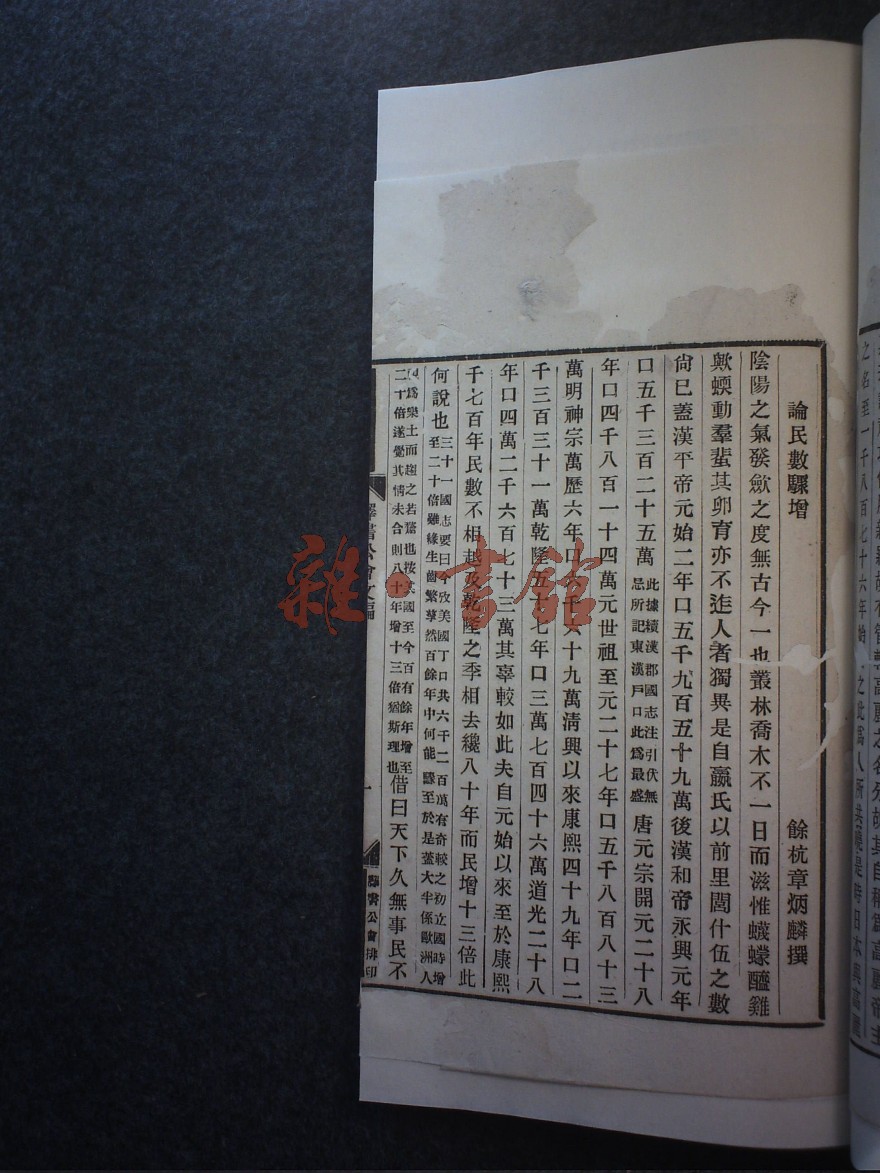 論民數驟增
餘杭章炳麟撰
陰陽之氣發斂之度無古今一也叢林喬木不一日而滋惟蠛蠓醯雞
歟蝡動羣蜚其卵育亦不迣人者獨異是自嬴氏以前里閭什伍之數
尙已蓋漢平帝元始二年口五千九百五十九萬後漢和帝永興元年
口五千三百二十五萬此據續漢郡國志注引伏無忌所記東漢戶口此爲最盛唐元宗開元二十八
年口四千八百一十四萬元世祖至元二十七年口五千八百八十三
萬明神宗萬歷六年口六千六十九萬清興以來康熙四十九年口二
千三百三十一萬乾隆五十七年口三萬七百四十六萬道光二十八
年口四萬二千六百七十三萬其辜較如此夫自元始以來至於康熙
千七百年民數不相越及乾隆之季相去纔八十年而民增十三倍此
何說也三十一國志要曰今攷美國丁口共六千二百萬有奇較之初立國時增至二十倍雖緣生齒繁孳然百餘年中何能驟至於是蓋大半係歐洲人
爲樂土而趨之若鶩也按美國至今百有餘年增至二十倍遂覺其情未合則八十年增十三倍猶斯理也借曰天下久無事民不
譯書公會文編
一
公會排印
雜·書館
之名至一千八百七十六年始